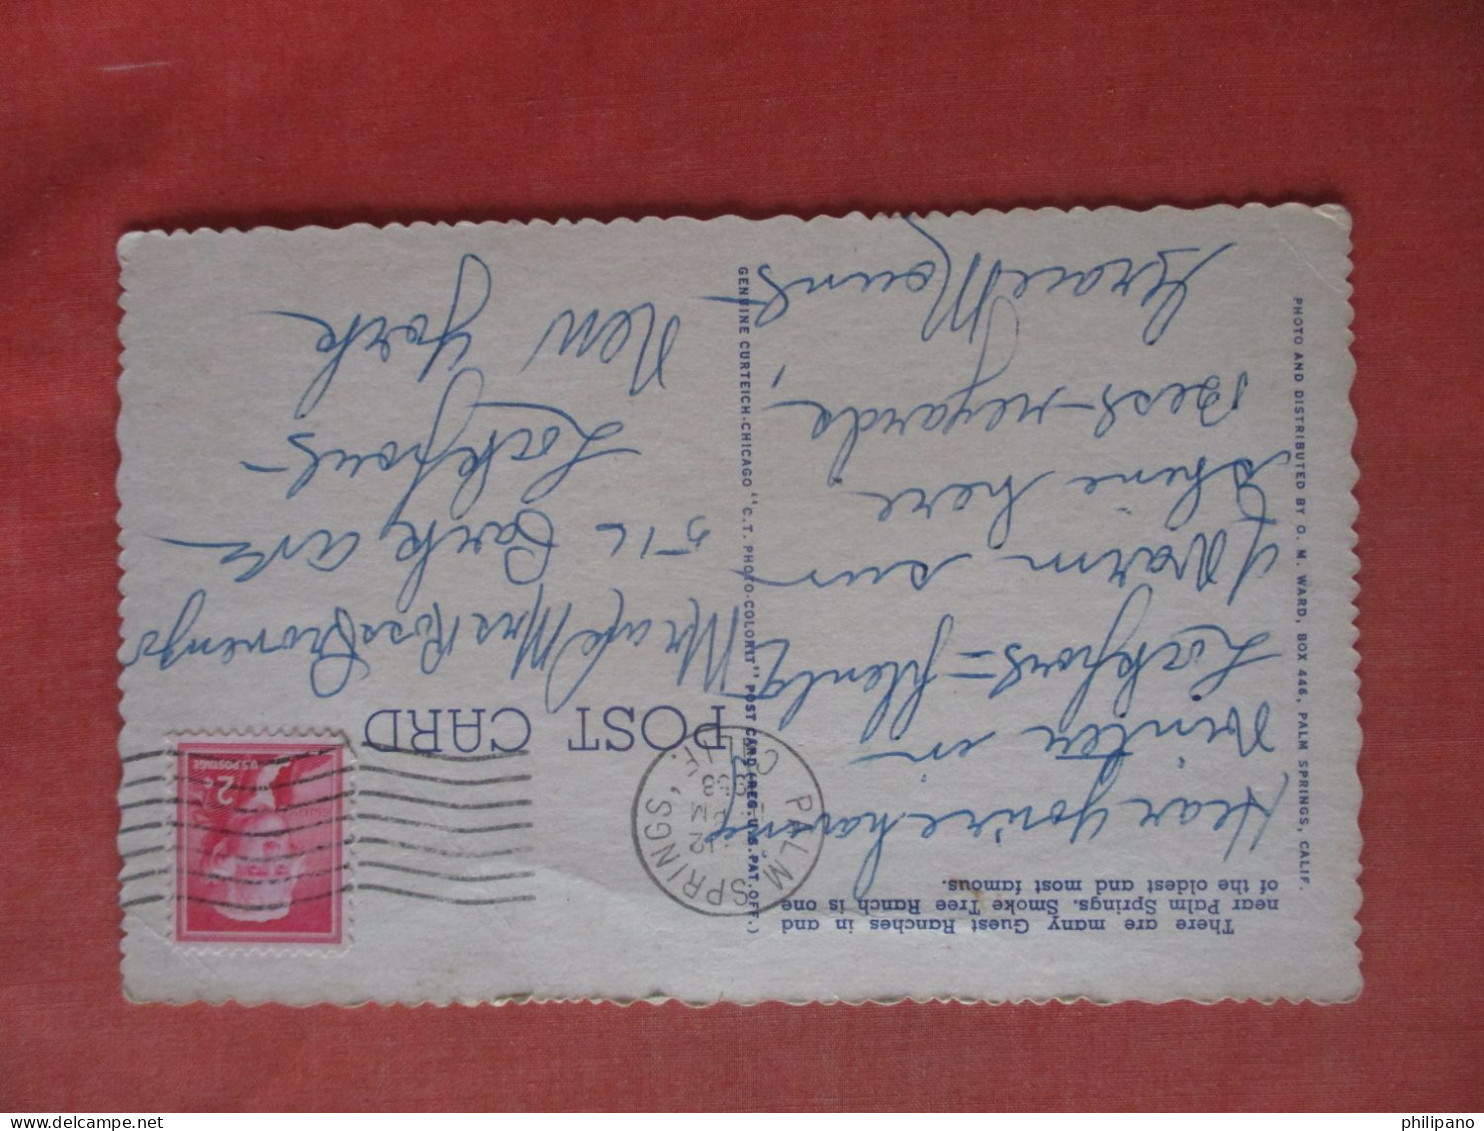 There are many Guest Ranches in and
near Palm Springs. Smoke Tree Ranch is one
of the oldest and most famous.
Hear you're having
Winter in
Lockport = plenty
Warm sun
shine here
Best regards,
Grace Mount
PHOTO AND DISTRIBUTED BY O. M. WARD, BOX 446, PALM SPRINGS, CALIF.
GENUINE CURTEICH-CHICAGO "C.T. PHOTO-COLORIT" POST CARD (REG. U.S. PAT. OFF.)
POST CARD
PALM SPRINGS, CALIF.
12
PM
U.S. POSTAGE
2¢
Mr and Mrs Ross Provenzo
516 Park ave
Lockport
New York
philipano
www.delcampe.net